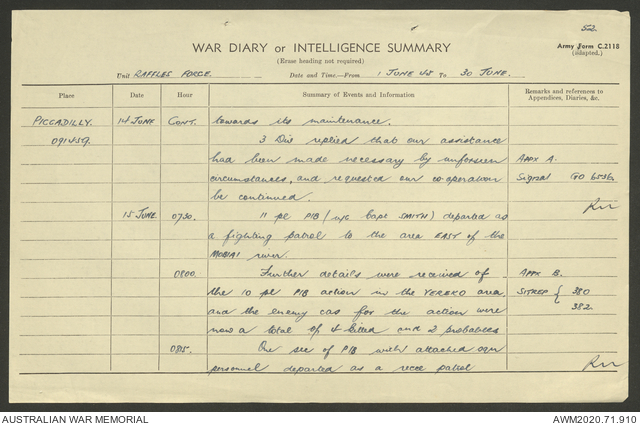 52.
WAR DIARY or INTELLIGENCE SUMMARY
(Erase heading not required)
Army Form C.2118
(adapted.)
Unit RAFFLES FORCE. Date and Time—From 1 JUNE 45 To 30 JUNE.
Place Date Hour Summary of Events and Information Remarks and references to
Appendices, Diaries, &c.
PICCADILLY. 14 JUNE CONT. towards its maintenance.
091459. 3 Div replied that our assistance
had been made necessary by unforseen APPX A.
circumstances, and requested our co-operation Signal GO 6536.
be continued.
15 JUNE 0730. 11 pl PIB (u/c Capt SMITH) departed as
a fighting patrol to the area EAST of the
MOBIAI river.
0800. Further details were received of APPX B.
the 10 pl PIB action in the YEREKO area, SITREP { 380
and the enemy cas for the action were 382.
now a total of 4 killed and 2 probables
0815. One sec of PIB with attached
personnel departed as a recce patrol
AUSTRALIAN WAR MEMORIAL AWM2020.71.910